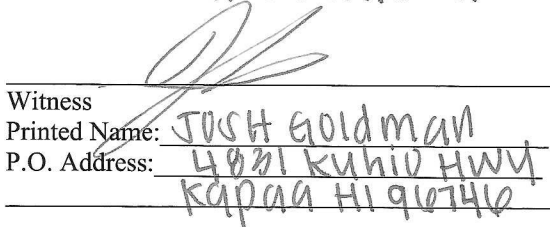 Witness
Printed Name: JOSH GOldmaN
P.O. Address: 4831 KUHIO HWY
Kapaa HI 96746